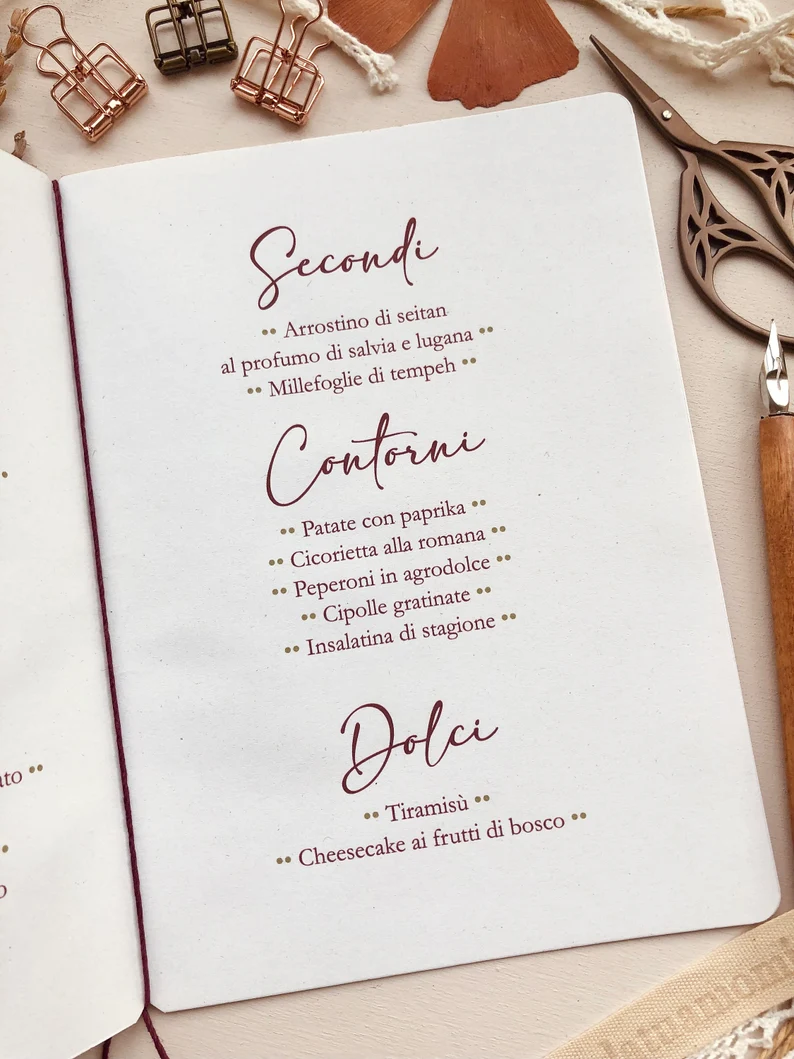 Secondi
•• Arrostino di seitan
al profumo di salvia e lugana ••
•• Millefoglie di tempeh ••
Contorni
•• Patate con paprika ••
•• Cicorietta alla romana ••
•• Peperoni in agrodolce ••
•• Cipolle gratinate ••
•• Insalatina di stagione ••
Dolci
•• Tiramisù ••
•• Cheesecake ai frutti di bosco ••